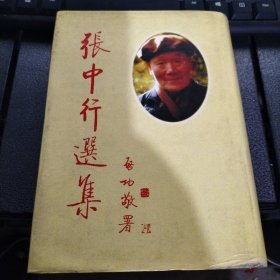 張中行選集
啓功敬署